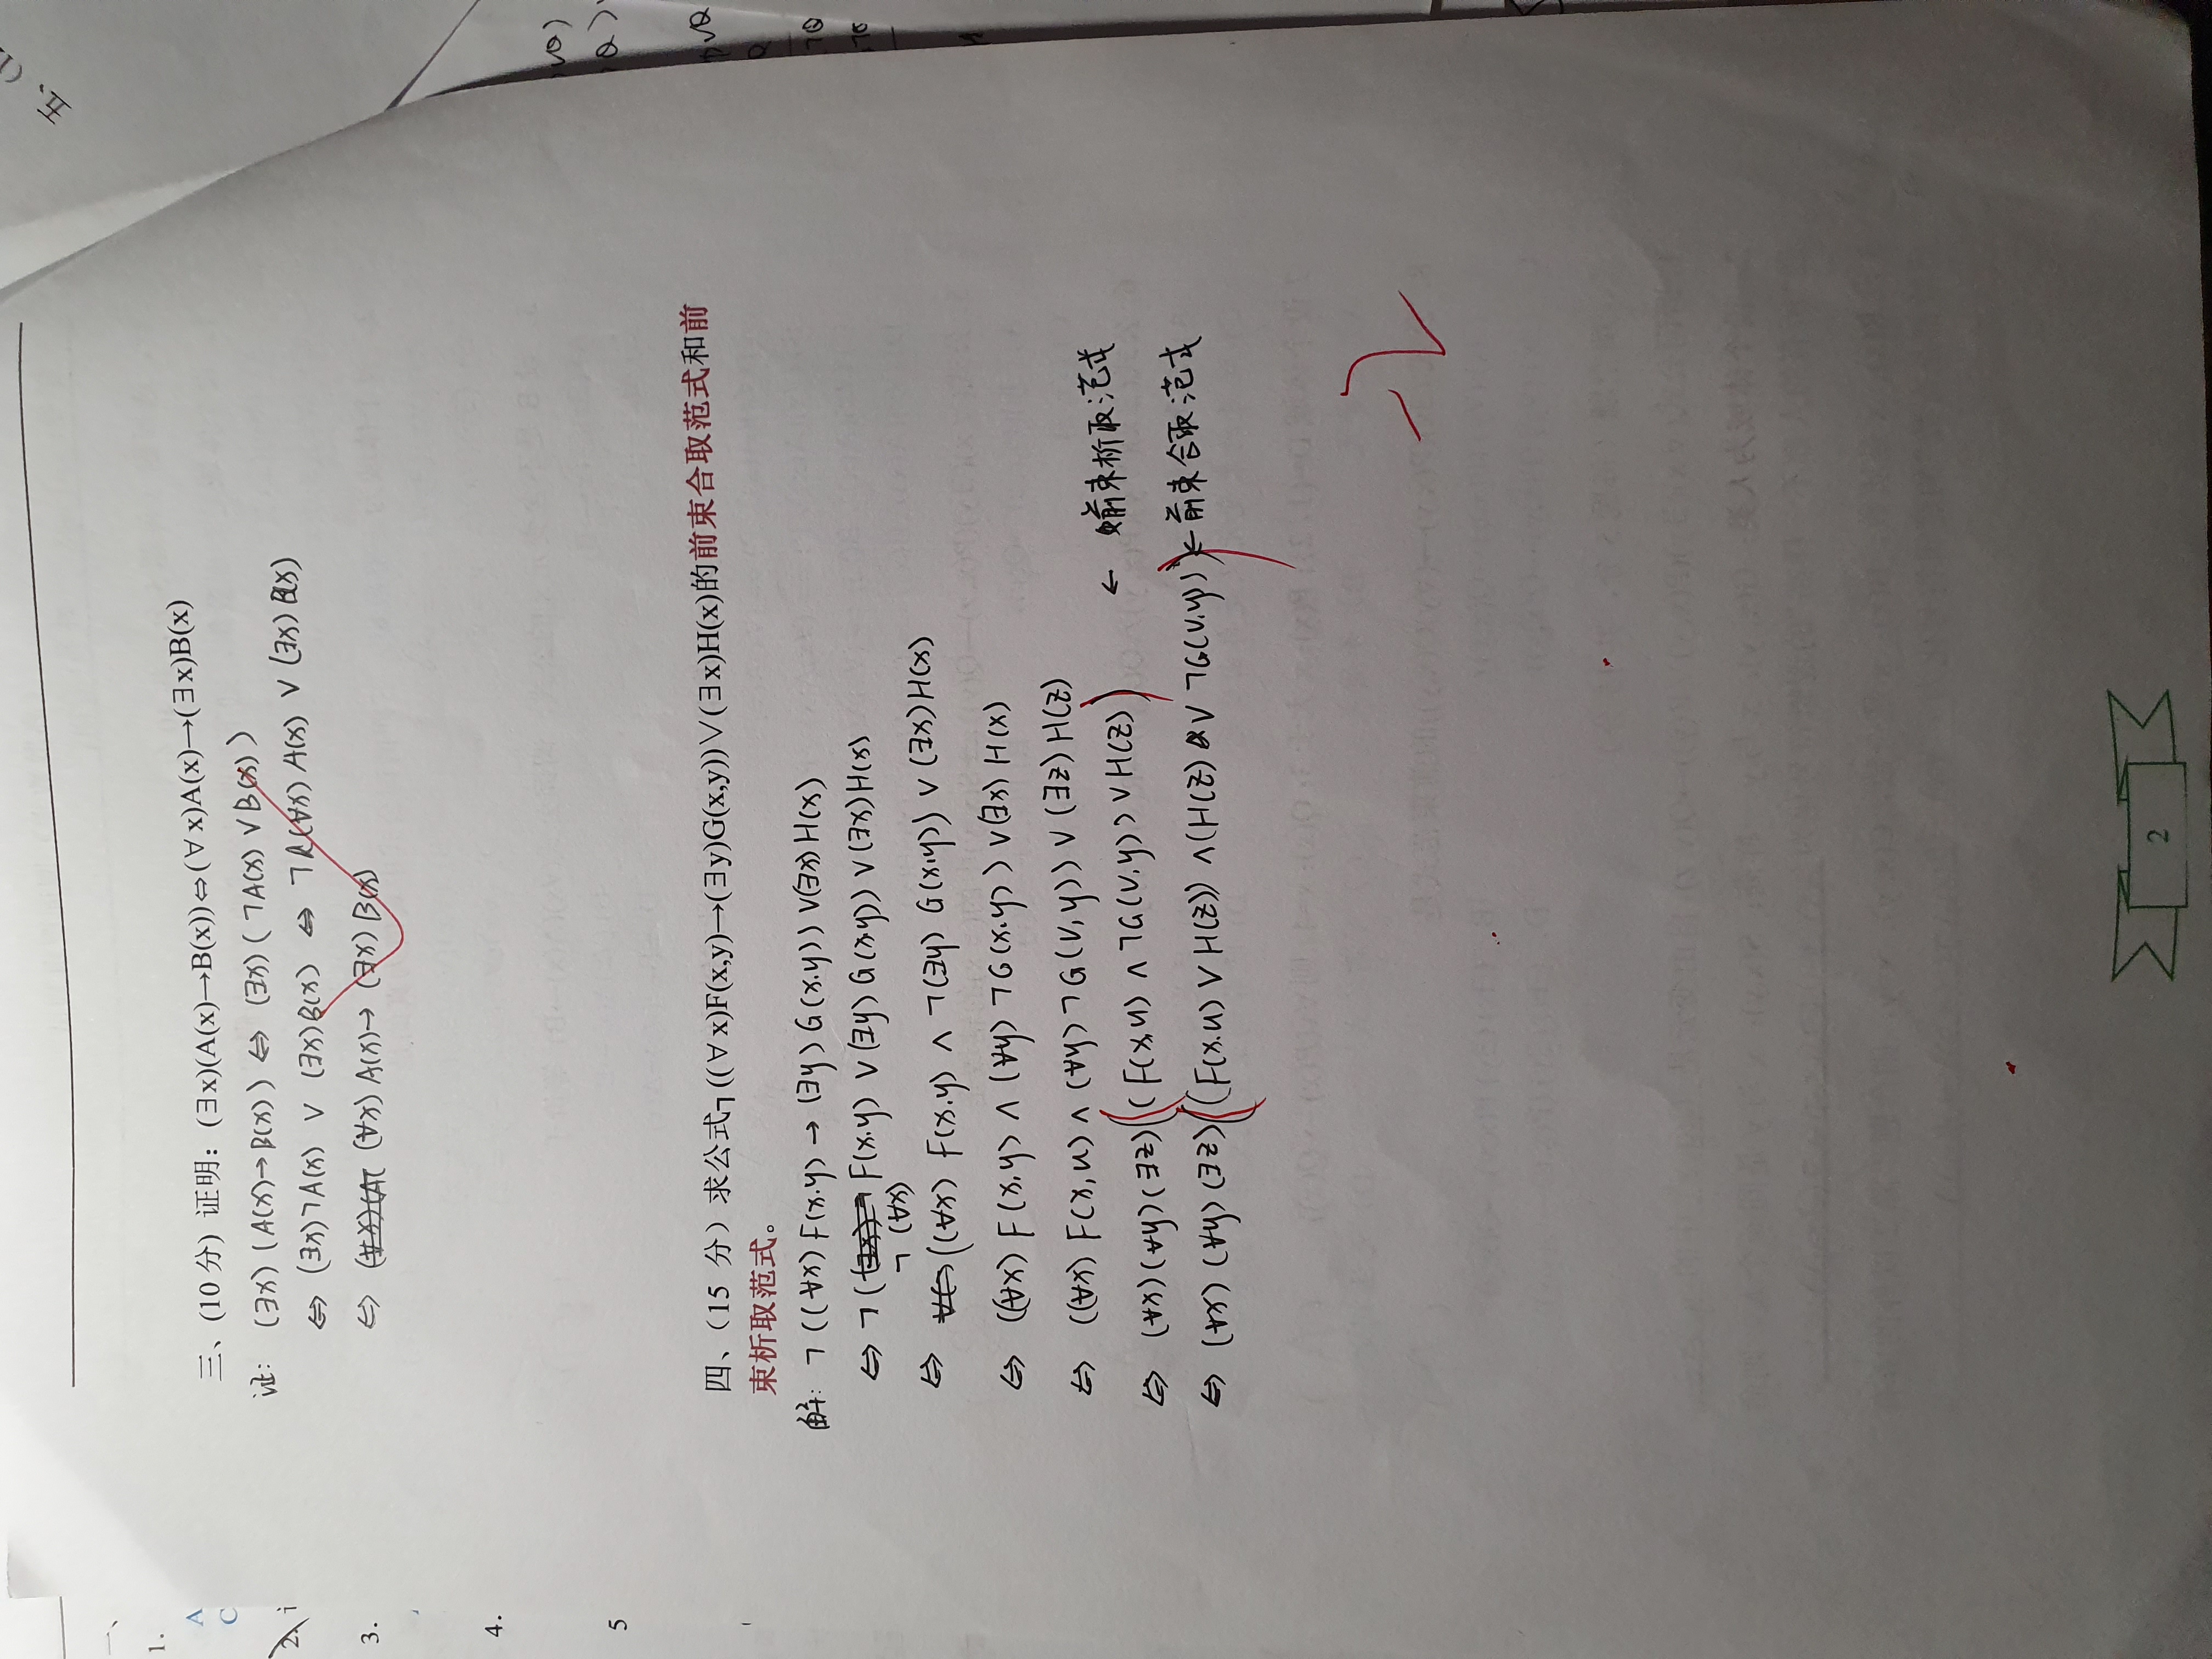 三、(10 分) 证明：(∃x)(A(x)→B(x))⇔(∀x)A(x)→(∃x)B(x)
证: (∃x) (A(x)→B(x)) ⇔ (∃x) (¬A(x) ∨ B(x))
⇔ (∃x)¬A(x) ∨ (∃x)B(x) ⇔ ¬(∀x) A(x) ∨ (∃x) B(x)
⇔ (∀x) A(x)→ (∃x) B(x)
四、（15 分）求公式¬((∀x)F(x,y)→(∃y)G(x,y))∨(∃x)H(x)的前束合取范式和前
束析取范式。
解: ¬((∀x) F(x.y) → (∃y) G(x.y)) ∨(∃x) H(x)
⇔ ¬( F(x.y) ∨ (∃y) G(x.y)) ∨ (∃x)H(x)
¬ (∀x)
⇔ ((∀x) F(x.y) ∧ ¬(∃y) G(x,y)) ∨ (∃x)H(x)
⇔ ((∀x) F(x,y) ∧ (∀y) ¬G(x.y)) ∨(∃x) H(x)
⇔ ((∀x) F(x,u) ∧ (∀y)¬G(v,y)) ∨ (∃z) H(z)
⇔ (∀x)(∀y)(∃z)((F(x,u) ∧ ¬G(v,y)) ∨ H(z)) ← 前束析取范式
⇔ (∀x) (∀y) (∃z)((F(x.u) ∨ H(z)) ∧(H(z) ∨ ¬G(v,y))) ← 前束合取范式
-2
2
一、
1.
A
C
2.
3.
4.
5
五、(1
∨Q)
Q)
∨Q
¬Q